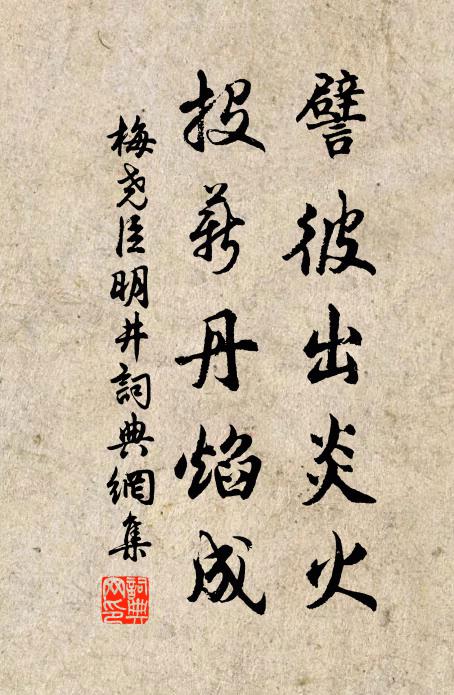 譬彼出炎火
投薪丹焰成
梅尧臣明井詞典網集
詞典網印